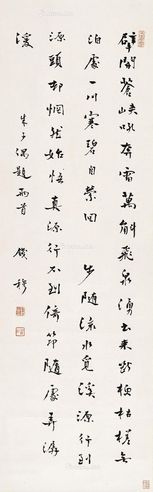 擘開蒼峽吼奔雷萬斛飛泉湧出來斷梗枯槎無
泊處一川寒碧自縈回　步隨流水覓溪源行到
源頭卻惘然始悟真源行不到倚筇隨處弄潺
湲　朱子偶題兩首　錢穆